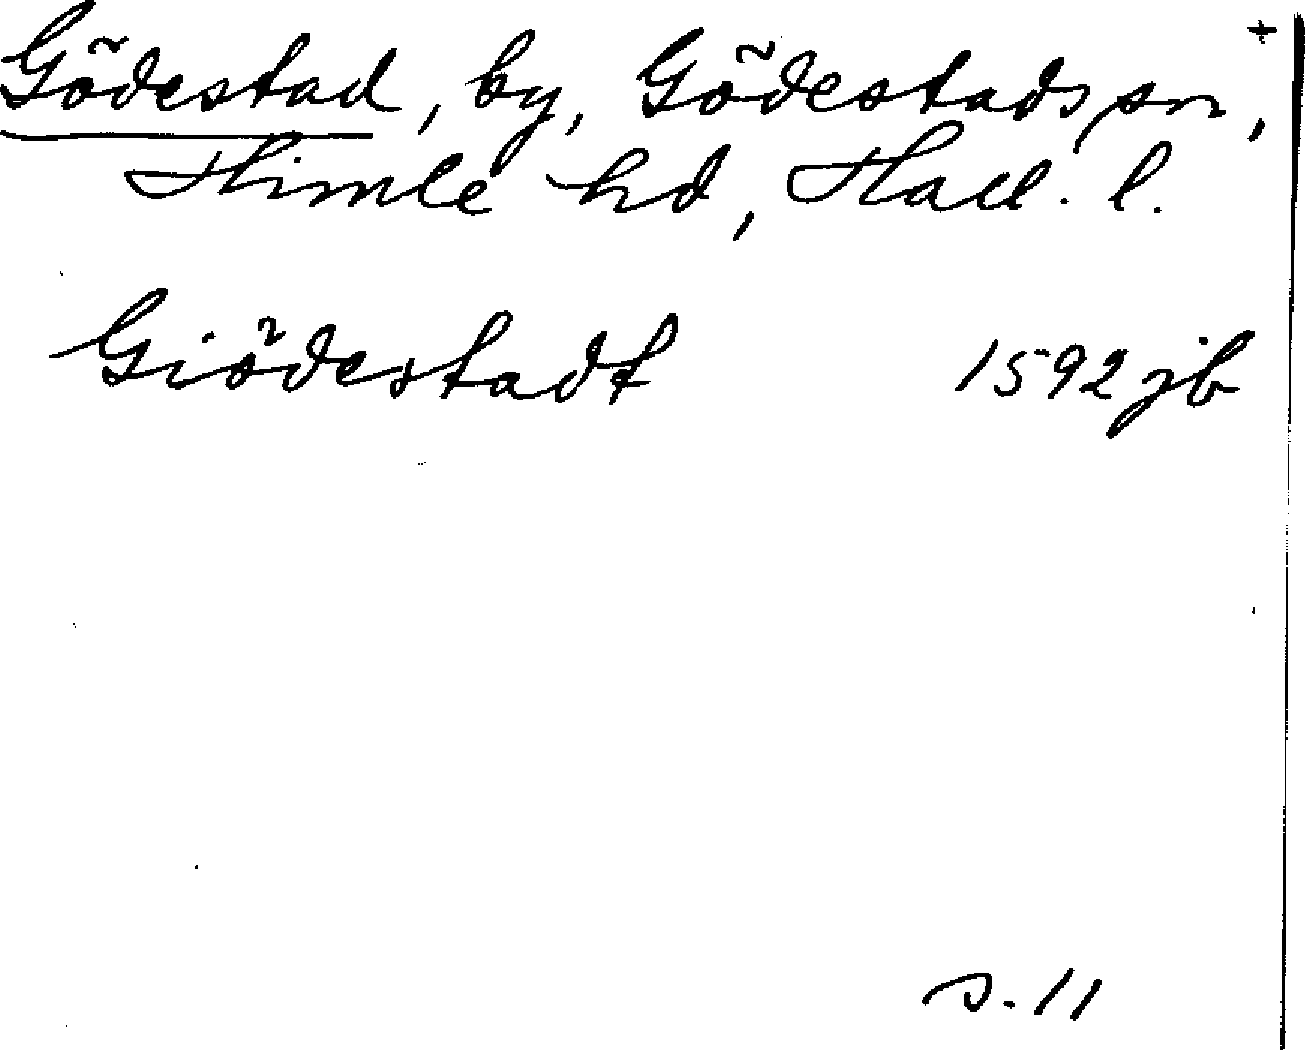 Gödestad, by, Gödestads sn,
Himle hd, Hall. l.
Giödestadt 1592 jb
s. 11